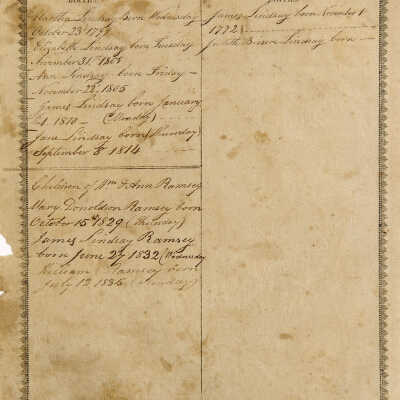 BIRTHS.
Martha Lindsay Born Wednesday
October 23 1799
Elizabeth Lindsay born Tuesday
November 31st 1801
Ann Lindsay born Friday -
November 22d 1805
James Lindsay born January
1st 1810 - (Monday)
Jane Lindsay born (Thursday)
September 8 1814
Children of Wm & Ann Ramsey
Mary Donoldson Ramsey born
October 15th 1829 (Thursday)
James Lindsay Ramsey
born June 27 1832 (Wednesday
William Ramsey born
July 12 1835 (Sunday)
BIRTHS.
James Lindsay born November 1
1772
Judith Lindsay born